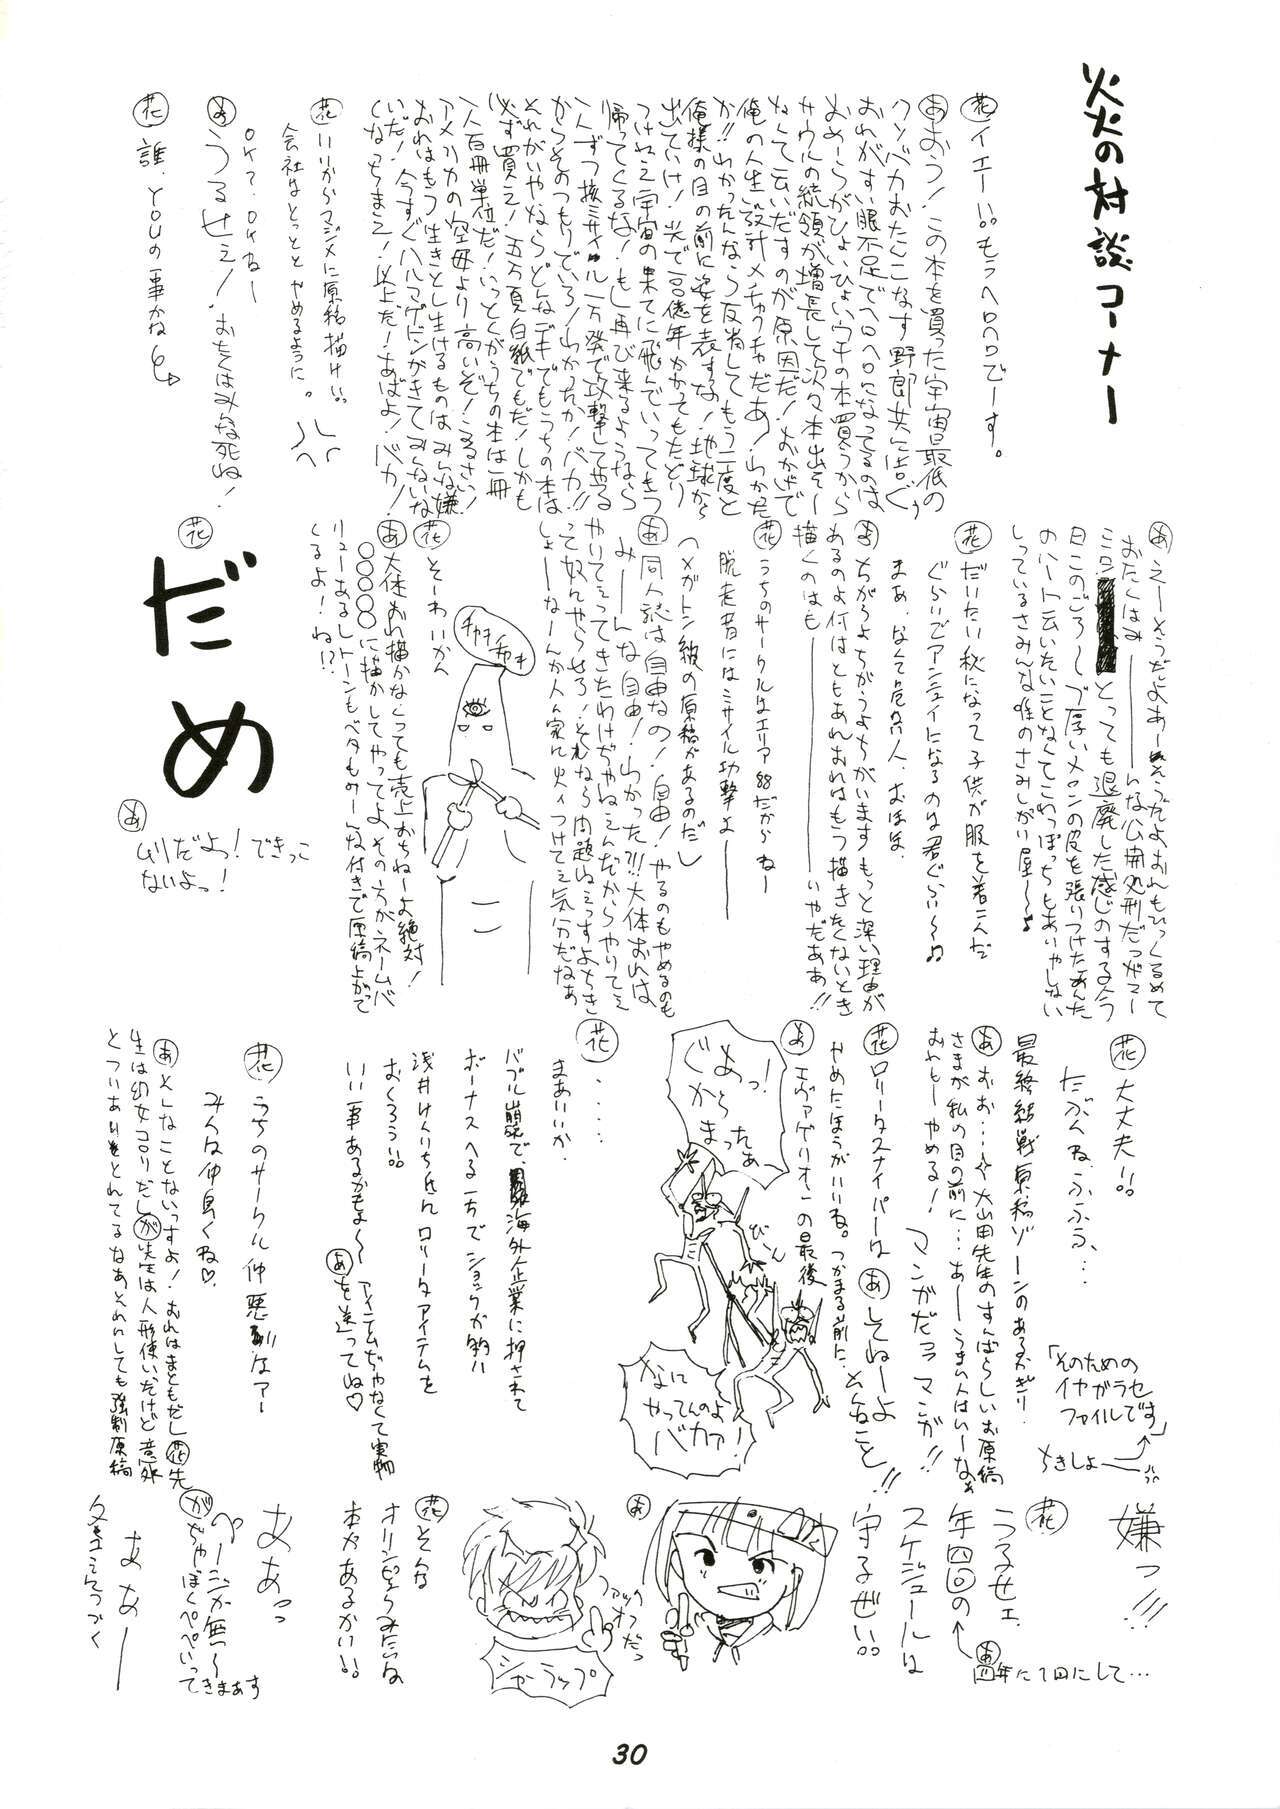 炎の対談コーナー
花 イエーい。もうヘロヘロでーす。
あ おう!この本を買った宇宙最低の
クソバカおたんこなす野郎共に告ぐぅ
おれがすい眠不足でヘロヘロになってるのは
おめーらがひょいひょいウチの本買うから
サウルの統領が増長して次々本出そー
なんて云いだすのが原因だ!おかげで
俺の人生設計メチャクチャだあ!わかった
か!!わかったんなら反省してもう二度と
俺様の目の前に姿を表すな!地球から
出ていけ!光で百億年かかってもたどり
つけねえ宇宙の果てに飛んでいってもう
帰ってくるな!もし再び来るようなら
一人ずつ核ミサイル一万発で攻撃してやる
からそのつもりでいろ!わかったか!バカ!!
それがいやならどんなデキでもうちの本は
必ず買え!五万頁白紙でもだ!しかも
一人百冊単位だ!いっとくがうちの本は一冊
アメリカの空母より高いぞ!うるさい!
おれはもう生きとし生けるものはみんな嫌
いだ!今すぐハルマゲドンがきてみんないな
くなっちまえ!以上だ!あばよ!バカ!
花 いいからマジメに原稿描けい。
会社はとっととやめるように。
OK?、OKねー
あ うるせえ!おたくはみんな死ね!
花 誰、YOUの事かね
あ えーそうだよあーそうだよおれもひっくるめて
おたくはみーーんな公開処刑だっがマー
ミロン とっても退廃した感じのするよう
日このごろーブ厚いメロンの皮を張りつけたあんた
のハート云いたいことなくてこわっぽっちもありゃしない
しっているさみんな唯のさみしがい屋〜〜♪
花 だいたい秋になって子供が服を着こんだ
ぐらいでアンニュイになるのは君ぐらい〜♫
まあ、なくて 人、おほほ、
あ ちがうよちがうよちがいますもっと深い理由が
あるのよ何はともあれおれはもう描きたくないとき
描くのはもーーーーーーいやだああ!!
花 うちのサークルはエリア88だからねー
脱走者にはミサイル攻撃よーーー
(メガトン級の原稿があるのだし
あ 同人誌は自由なの!自由!やるのもやめるのも
みーーんな自由!わかった?!!大体おれは
やりてえってきたわけぢゃねえんだからやりてえ
って奴んやらせろ!それなら問題ねえっすよちき
しょーなーんか人ん家に火ィつけてえ気分だなあ
花 そーわいかん
チャキチャキ
あ 大体おれ描かなくっても売上おちねーよ絶対!
〇〇〇〇に描かしてやってよ、その方がネームバ
リューあるしトーンもベタもの一な付きで原稿上がって
くるよ!ね!?
花 だめ
あ ムリだよっ!できっこ
ないよっ!
花 大丈夫!!
たぶんね、ふふう、…
最終結戦原稿ゾーンのあるかぎり.
「そのための
イヤガラセ
ファイルです」
ちきしょー
あ おお…大山田先生のすんばらしいお原稿
さまが私の目の前に…あーうまい人はいーなぁ
おれもーやめる!マンガだってマンガ!!
花 ロリータスナイパーは あ してねーよ
やめたほうがいいね。つかまる前に、 んなこと!!
あ エヴァゲリオーの最後
ぐあっ!
からまったぁ
びーん
なに
やってんのよ
バカァ!
花 ・・・・
まあいいか、
バブル崩壊で、海外企業に押されて
ボーナスへる一方でショックが多い
浅井けんいち氏んロリータアイテムを
おくろう!!
いい事あるかもよ〜 アイテムぢゃなくて実物
あ を送ってね♡
花 うちのサークル仲悪 はアー
みんな仲良くね♡、
あ そんなことないっすよ!おれはまともだし 花 先
生は幼女コロリだし が 先生は人形使いだけど意外
とつりあいもとれてるなあそれにしても強制原稿
嫌っ!!!
花 うるせェ
年四回の
スケジュールは
守るぜい!!
あ 四年に1回にして…
あ ファックオフだっ
シャーラップ
花 そんな
オリンピックみたいな
本があるかい!!
ああっ
ページが無〜
が ぢゃーぼくぺぺいって
きまあす
あなーーー
冬コミケつづく
30